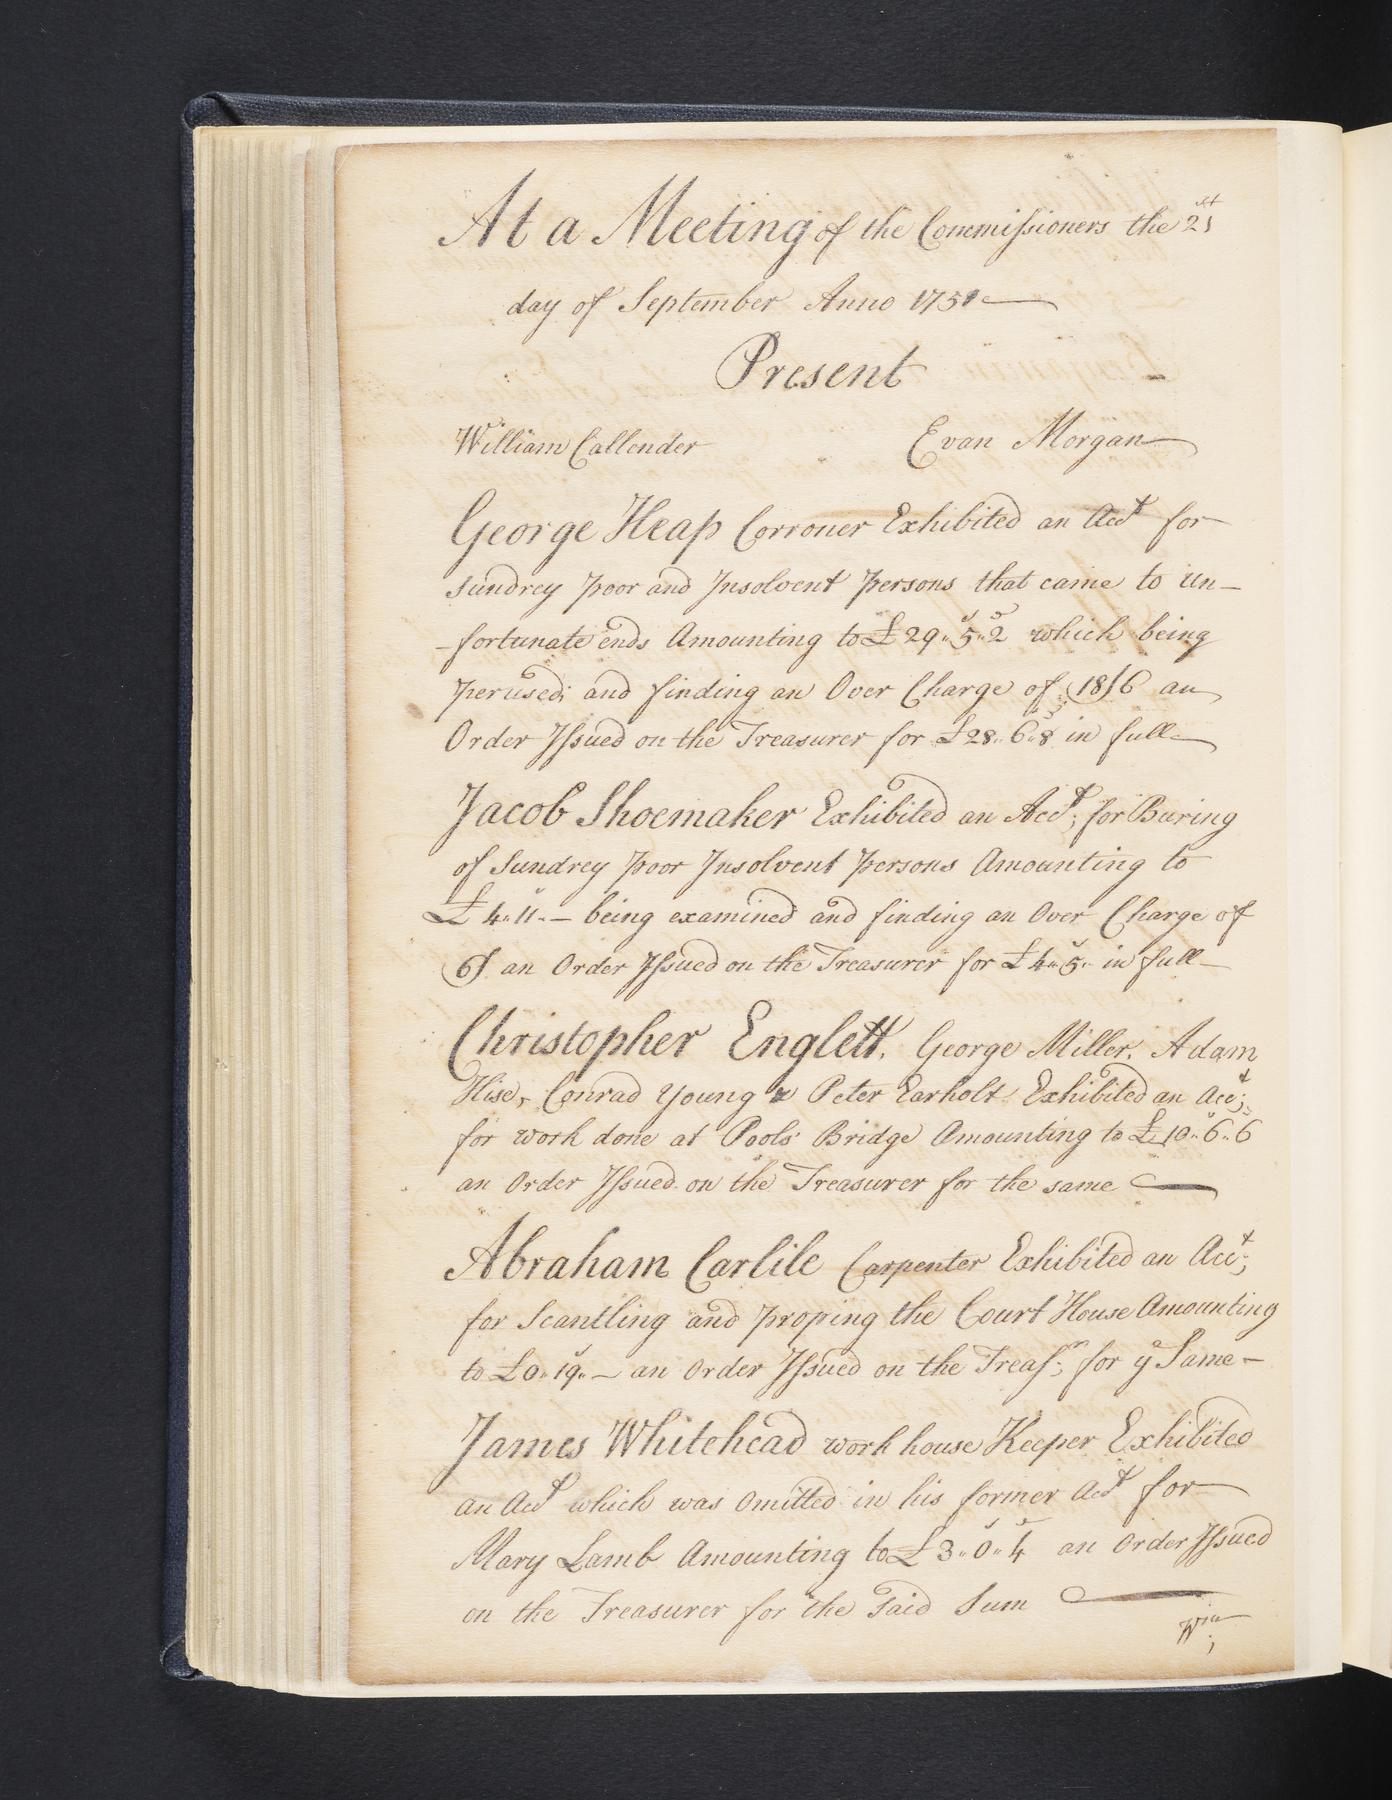 At a Meeting of the Commissioners the 21st
day of September Anno 1751
Present
William Callender Evan Morgan
George Heap Corroner Exhibited an Acct for
sundrey poor and Insolvent persons that came to un-
-fortunate ends Amounting to £29..5..2 which being
perused; and finding an Over Charge of 18/6 an
Order Issued on the Treasurer for £28..6..8 in full
Jacob Shoemaker Exhibited an Acct; for Buring
of Sundrey poor Insolvent persons Amounting to
£4..11..- being examined and finding an Over Charge of
6/ an Order Issued on the Treasurer for £4..5.. in full
Christopher Englett, George Miller, Adam
Hise, Conrad Young & Peter Earholt Exhibited an Acct;
for work done at Pools Bridge Amounting to £10..6..6
an Order Issued on the Treasurer for the same
Abraham Carlile Carpenter Exhibited an Acct;
for Scantling and proping the Court House Amounting
to £0..19..- an Order Issued on the Treasr; for ye Same-
James Whitehead work house Keeper Exhibited
an Acct which was Omitted in his former Acct for
Mary Lamb Amounting to £3..0..4 an Order Issued
on the Treasurer for the Said Sum
Wm;